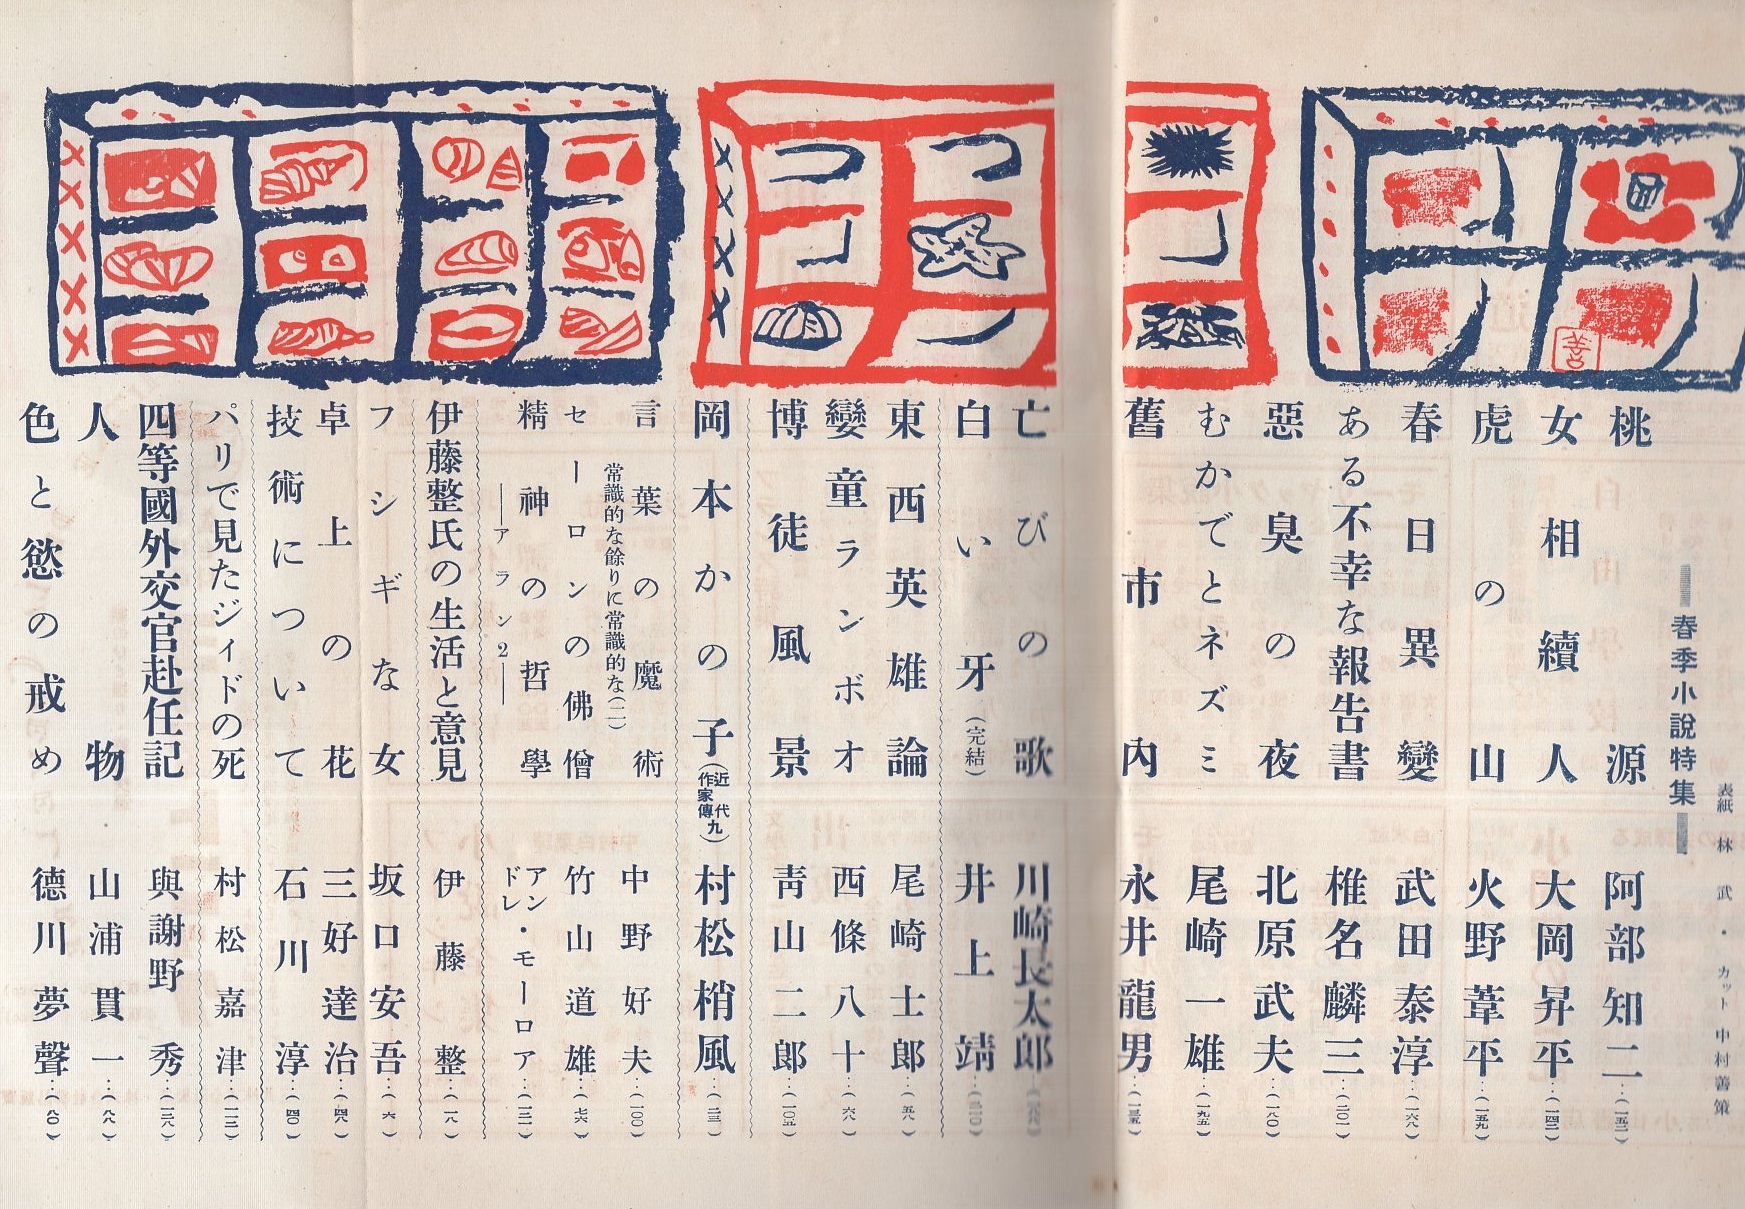 表紙 林 武・カット 中村善策
春季小說特集
桃源 阿部知二…(一五二)
女相續人 大岡昇平…(一四二)
虎の山 火野葦平…(一五九)
春日異變 武田泰淳…(一六八)
ある不幸な報告書 椎名麟三…(二〇一)
惡臭の夜 北原武夫…(一八〇)
むかでとネズミ 尾崎一雄…(一九五)
舊市内 永井龍男…(一三五)
亡びの歌 川崎長太郎
白い牙(完結) 井上靖…(二一〇)
東西英雄論 尾崎士郎…(五八)
變童ランボオ 西條八十…(六八)
博徒風景 靑山二郎…(一〇五)
岡本かの子(近代作家傳九) 村松梢風…(二三)
言葉の魔術 中野好夫…(一〇〇)
常識的な餘りに常識的な(二)
セーロンの佛僧 竹山道雄…(七六)
精神の哲學 アンドレ・モーロア…(一二一)
―アラン2―
伊藤整氏の生活と意見 伊藤整…(一八)
フシギな女 坂口安吾…(六)
卓上の花 三好達治…(四八)
技術について 石川淳…(四〇)
パリで見たジィドの死 村松嘉津…(一一二)
四等國外交官赴任記 與謝野秀…(一二八)
人物 山浦貫一…(八八)
色と慾の戒め 德川夢聲…(八〇)
善